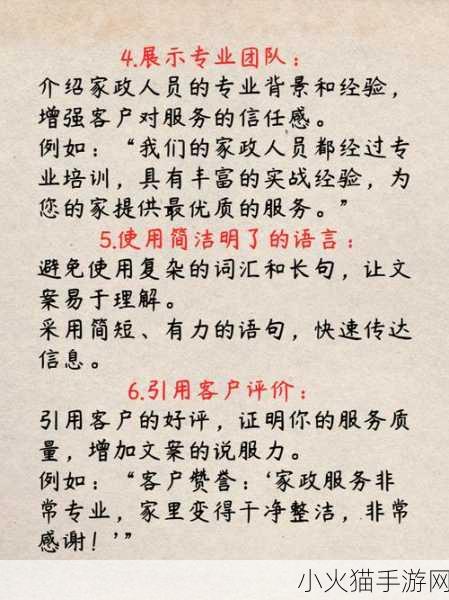 4.展示专业团队：
介绍家政人员的专业背景和经验，
增强客户对服务的信任感。
例如：“我们的家政人员都经过专
业培训，具有丰富的实战经验，为
您的家提供最优质的服务。”
5.使用简洁明了的语言：
避免使用复杂的词汇和长句，让文
案易于理解。
采用简短、有力的语句，快速传达
信息。
6.引用客户评价：
引用客户的好评，证明你的服务质
量，增加文案的说服力。
例如：“客户赞誉：‘家政服务非
常专业，家里变得干净整洁，非常
感谢！’”
小火猫手游网